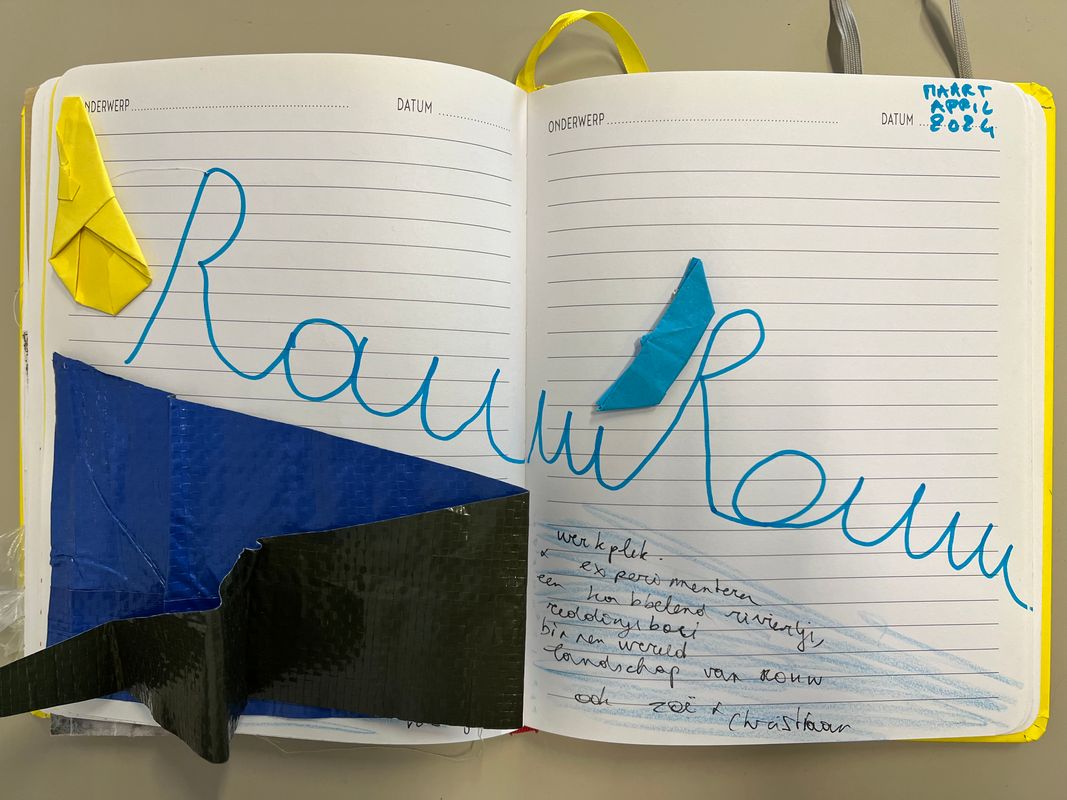 ONDERWERP
DATUM
ONDERWERP
DATUM
MAART
APRIL
2024
Rouw
Rouw
werkplek.
experimenteren
een kabbelend riviertje,
reddingsboei
binnen wereld
landschap van rouw
ook zoë +